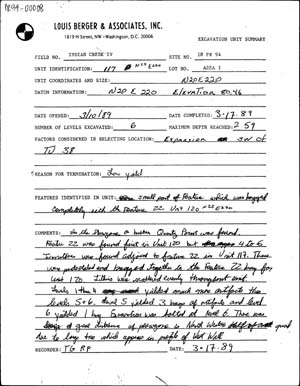 1894-00008
LOUIS BERGER & ASSOCIATES, INC.
1819 H Street, NW • Washington, D.C. 20006
EXCAVATION UNIT SUMMARY
FIELD NO. INDIAN CREEK IV SITE NO. 18 PR 94
UNIT IDENTIFICATION: 117 N20E220 LOT NO. AREA 3
UNIT COORDINATES AND SIZE: N20E220
DATUM INFORMATION: N20 E 220 Elevation 80.46
DATE OPENED: 3/10/89 DATE COMPLETED: 3-17-89
NUMBER OF LEVELS EXCAVATED: 6 MAXIMUM DEPTH REACHED: 2.59
FACTORS CONSIDERED IN SELECTING LOCATION: Expansion SW of
TU 38
REASON FOR TERMINATION: Low yield
FEATURES IDENTIFIED IN UNIT: small part of Feature which was bagged
completely with the Feature 22 Unit 120
COMMENTS: In the a Point was found.
Feature 22 was found first in Unit 120 but
were found adjacent to feature 22 in Unit 117. These
were and bagged together in the Feature 22 bag for
unit 120. Lithic was scattered evenly throughout unit.
Levels yielded much more artifacts than
levels 5+6. Level 5 yielded 3 bags of artifacts and level
6 yielded 1 bag. Excavation was halted at level 6. There was
in West Wall
due to large tree which appears in profile of West Wall
RECORDER: TG RP DATE: 3-17-89